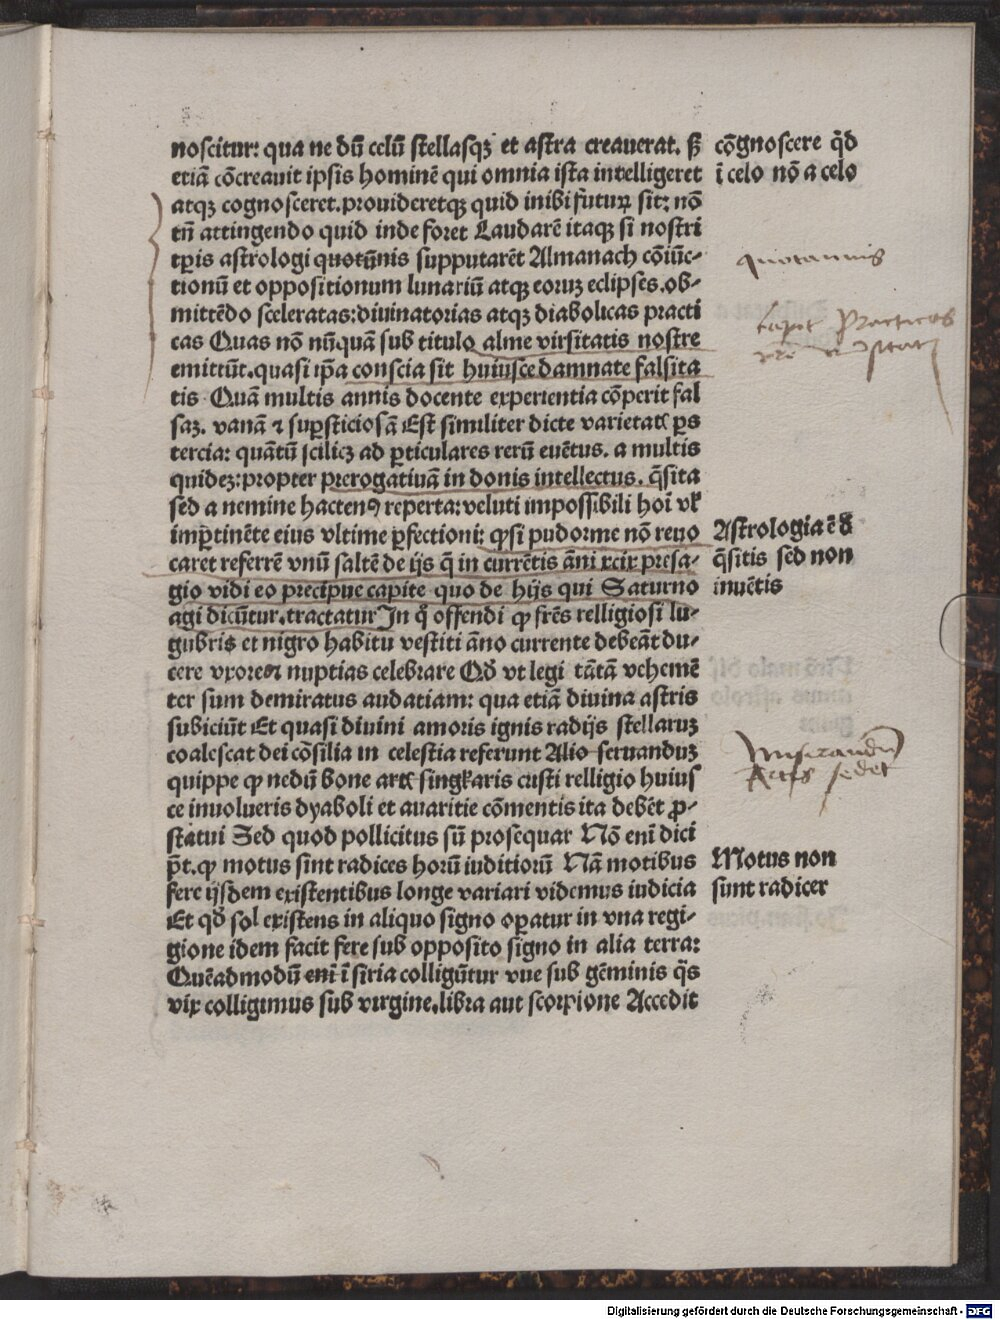 noscitur: qua ne dū celū stellasqꝫ et astra creauerat. sꝫ
etiā cōcreauit ipsis hominē qui omnia ista intelligeret
atqꝫ cognosceret.prouideretqꝫ quid inibi futurꝝ sit: nō
tn̄ attingendo quid inde foret Laudarē itaqꝫ si nostri
tꝑis astrologi quotūnis supputarēt Almanach cōiūc-
tionū et oppositionum lunariū atqꝫ eoruꝫ eclipses.ob-
mittēdo sceleratas:diuinatorias atqꝫ diabolicas practi
cas Quas nō nūquā sub titulo alme vir̄sitatis nostre
emittūt.quasi ip̄a conscia sit huiusce damnate falsita
tis Quā multis annis docente experientia cōperit fal
saꝫ. vanā ⁊ suꝑsticiosā Est similiter dicte varietatꝭ ꝑs
tercia: quātū scilicꝫ ad ꝑticulares rerū euētus. a multis
quideꝫ:propter prerogatiuā in donis intellectus. q̄sita
sed a nemine hactenꝰ reperta:veluti impossibili hoī vꝉ
imꝑtinēte eius vltime ꝑfectioni: qꝫsi pudor me nō reuo
caret referrē vnū saltē de ijs q̄ in currētis āni xcix presa-
gio vidi eo precipue capite quo de hijs qui Saturno
agi dicūtur.tractatur In q̊ offendi ꝙ fr̄es relligiosi lu-
gubris et nigro habitu vestiti āno currente debeāt du-
cere vxores ⁊ nuptias celebrare Qd̄ vt legi tātā vehemē
ter sum demiratus audatiam: qua etiā diuina astris
subiciūt Et quasi diuini amoris ignis radijs stellaruꝫ
coalescat dei cōsilia in celestia referunt Alio seruanduꝫ
quippe ꝙ nedū bone artꝭ singꝉaris custi relligio huius
ce inuolueris dyaboli et auaritie cōmentis ita debēt ꝓ-
statui Sed quod pollicitus sū prosequar Nō enī dici
p̄t.ꝙ motus sint radices horū iuditiorū Nā motibus
fere ijsdem existentibus longe variari videmus iudicia
Et qd̄ sol existens in aliquo signo oꝑatur in vna regi-
gione idem facit fere sub opposito signo in alia terra:
Quēadmodū enī ī siria colligūtur vue sub gēminis q̄s
vix colligimus sub virgine.libra aut scorpione Accedit
cōgnoscere q̄d
ī celo nō a celo
quotannis
Practicas
Astrologia ē d̄
q̄sitis sed non
inuētis
Miserandū
sedet
Motus non
sunt radicer
Digitalisierung gefördert durch die Deutsche Forschungsgemeinschaft - DFG